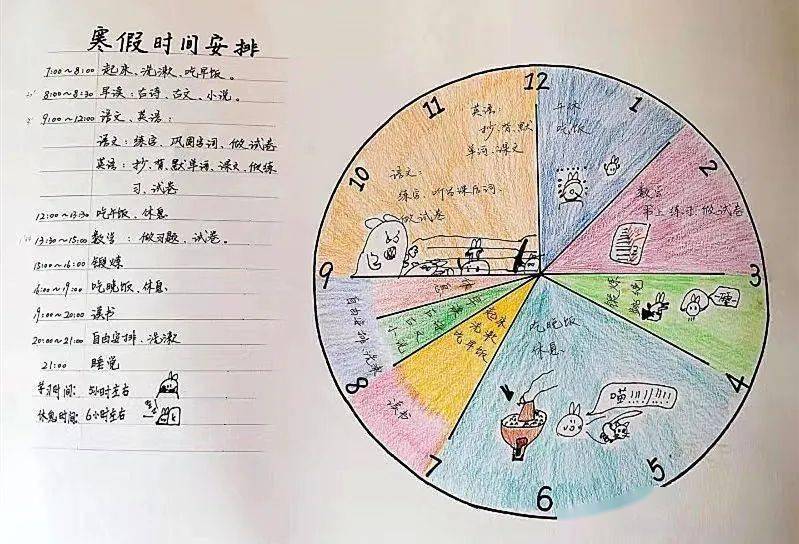 寒假时间安排
7:00~8:00 起来、洗漱、吃早饭。
8:00~8:30 早读:古诗、古文、小说。
9:00~12:00 语文、英语:
语文:练字、巩固字词、做试卷
英语:抄、背、默单词、课文、做练
习、试卷
12:00~13:30 吃午饭、休息
13:30~15:00 数学:做习题、试卷。
15:00~16:00 锻炼
16:00~19:00 吃晚饭、休息
19:00~20:00 读书
20:00~21:00 自由安排、洗漱
21:00 睡觉
学习时间: 5小时左右
休息时间: 6小时左右
12
1
2
3
4
5
6
7
8
9
10
11
英语:
抄、背、默
单词、课文
语文:
练字、听写课后词
做试卷
午休
吃饭
数学
练习、做试卷
锻炼
吃晚饭
休息
喵
起来
洗漱
吃早饭
读书
自由安排、洗漱
早读
古诗
古文
小说